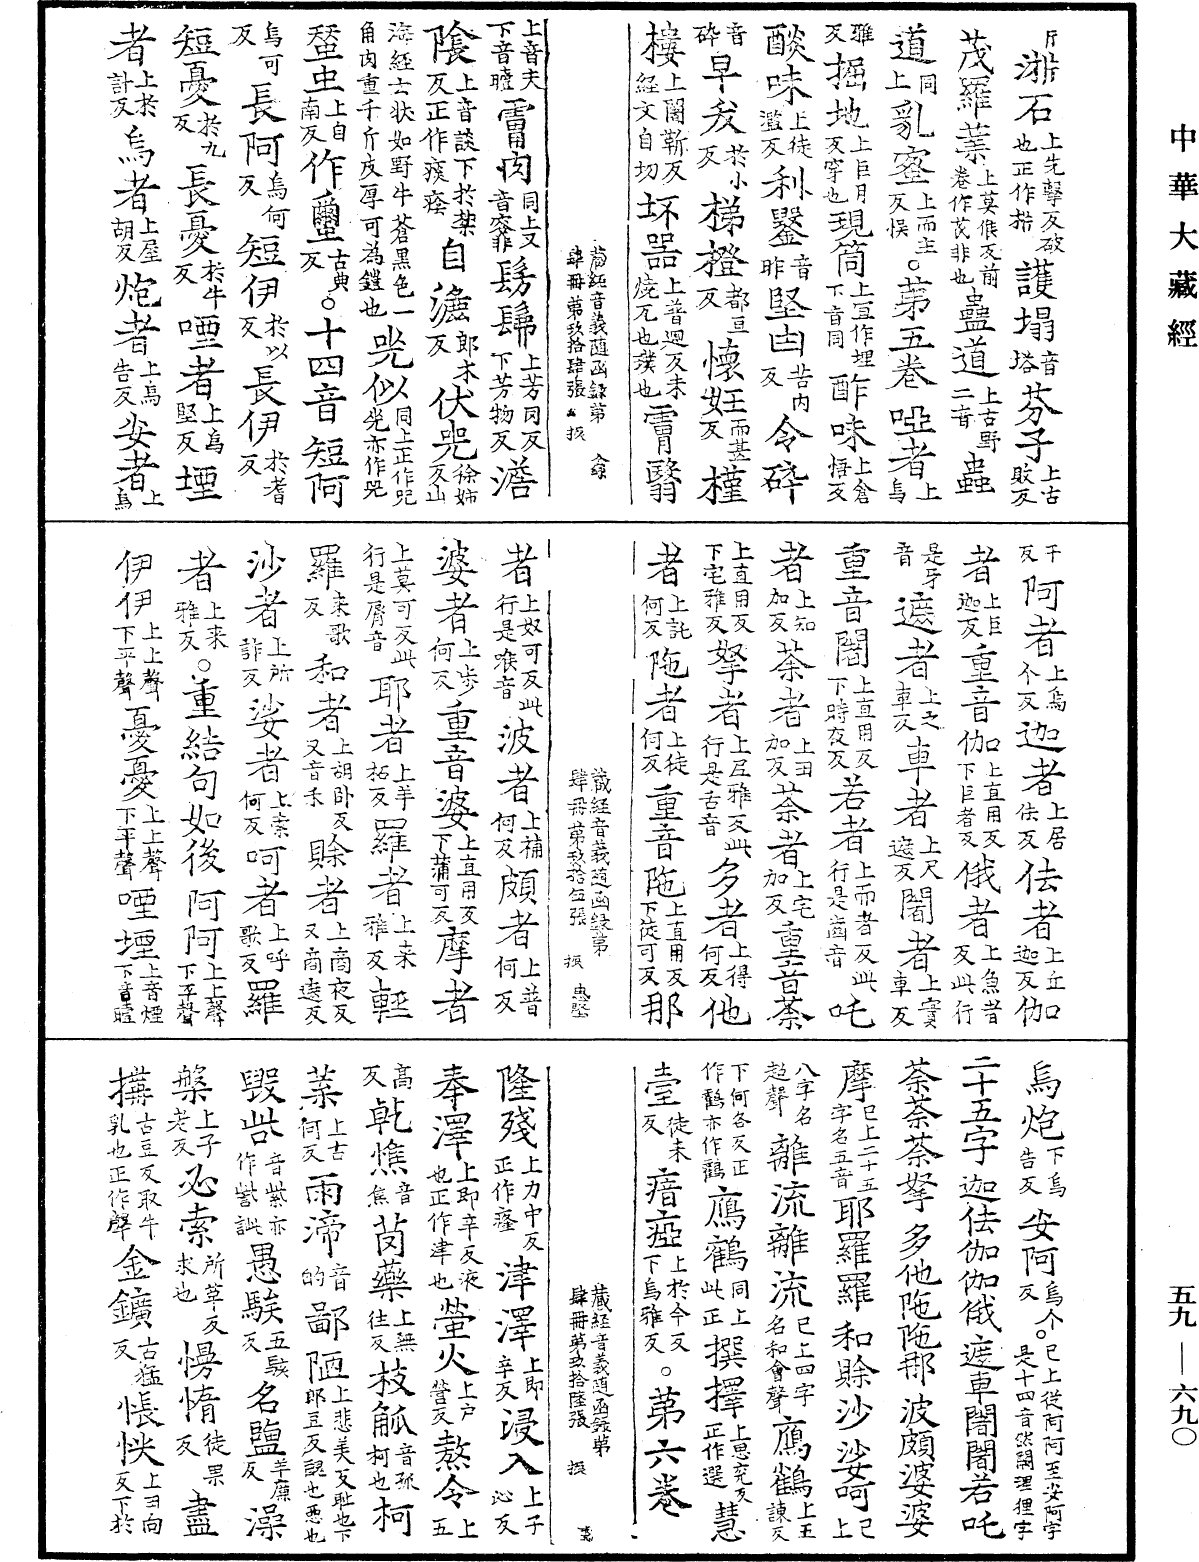 中華大藏經
五九—六九〇
斤反 㴒石上先擊反破也正作㭊 護塌音塔 芬子上古敗反
茂羅葉上莫候反前卷作茂非也 蠱道上古野二音 蠱
道同上 乳蜜上而主反悮 。第五卷 啞者上烏
雅反 掘地上巨月反穿也 現筒上宜作埋下音同 酢味上倉悟反
醶味上徒濫反 利鑿音昨 堅甴苦內反 令碎
音碎 早夋於小反 梯橙都亘反 懷妊而甚反 槿
樓上闇靳反經文自切 坏器上普迴反未燒瓦也璞也 霄翳
藏經音義隨函錄第肆冊第玖拾肆張 振
上音夫下音瞻 霄肉同上又音霏 髣髴上芳冈反下芳物反 澹
陰上音談下於禁反正作痰癊 自澹郎木反 伏兕徐姊反山
海經云狀如野牛蒼黑色一角肉重千斤皮厚可為鎧也 兕似同上正作兕兕亦作兕
蝅虫上自南反 作璽古典反 。十四音 短阿
烏可反 長阿烏何反 短伊於以反 長伊於耆反
短憂於九反 長憂於牛反 咽者上烏堅反 堙
者上於計反 烏者上屋胡反 炮者上烏告反 安者上烏
干反 阿者上烏个反 迦者上居佉反 佉者上丘迦反 伽
者上巨迦反 重音伽口上直用反下巨者反 俄者上魚者反此行
是牙音 遮者上之車反 車者上尺遮反 闍者上實車反
重音闍上直用反下時夜反 若者上而者反此行是齒音 吒
者上知加反 荼者上田加反 荼者上宅加反 重音荼
上直用反下宅雅反 拏者上尼雅反此行是舌音 多者上得何反 他
者上託何反 陁者上徒何反 重音陁上直用反下徒可反 那
藏經音義隨函錄第肆冊第玖拾伍張 振 惠堅
者上奴可反此行是喉音 波者上補何反 頗者上普何反
婆者上步何反 重音婆上直用反下蒲可反 摩者
上莫可反此行是脣音 耶者上羊柘反 羅者上来雅反 輕
羅来歌反 和者上胡卧反又音禾 賒者上商夜反又商遮反
沙者上所詐反 娑者上素何反 呵者上呼歌反 羅
者上来雅反 。重結句如後 阿阿上上聲下平聲
伊伊上上聲下平聲 憂憂上上聲下平聲 咽堙上音煙下音曀
烏炮下烏告反 安阿烏个反 。已上從阿阿至安阿字是十四音然闕理狸字
二十五字 迦佉伽伽俄遮車闍闍若吒
荼荼荼拏 多他陁陁那波頗婆婆
摩已上二十五字名五音 耶羅羅和賒沙娑呵已上
八字名超聲 離流離流已上四字名和會聲 鴈鸛上五諫反
下何各反正作鶴亦作鸖 鴈鶴同上此正 撰擇上思兖反正作選 慧
壹徒木反 瘖瘂上於今反下烏雅反 。第六卷
藏經音義隨函錄第肆冊第玖拾陸張 振
隆殘上力中反正作癃 津澤上即辛反 浸入上子沁反
奉澤上即辛反液也正作津也 螢火上户營反 熬令上五
高反 乾憔音焦 茵藥上無往反 枝觚音孤柯也 柯
葉上古何反 雨渧音的 鄙陋上悲美反耻也下郎豆反醜也惡也
毀呰音紫亦作訾訿 愚騃五駭反 名鹽羊廉反 澡
槃上子老反 必索所革反求也 慢惰徒果反 盡
搆古豆反取牛乳也正作𤛗 金鑛古猛反 悵怏上丑向反下於